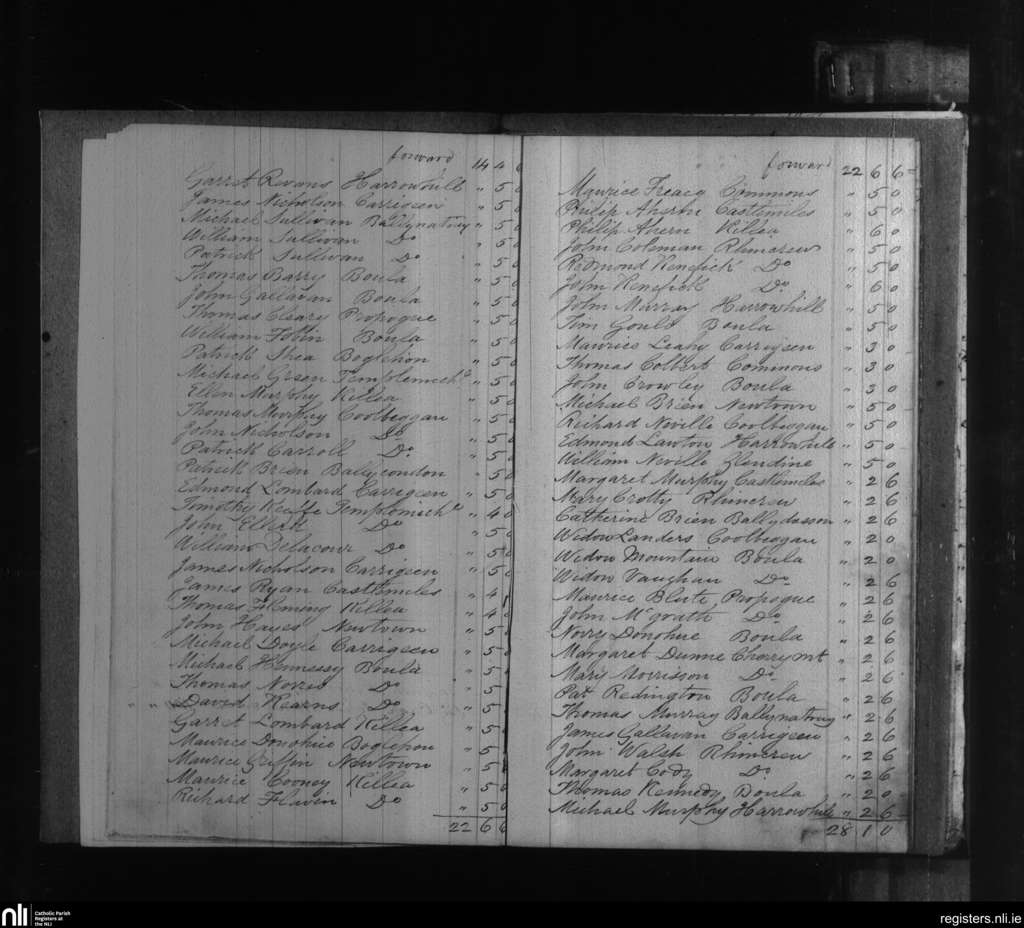 forward 14 4 6
Garret Revans Harrowhill " 5 0
James Nicholson Carrigeen " 5 0
Michael Sullivan Ballynatray " 5 0
William Sullivan Do " 5 0
Patrick Sullivan Do " 5 0
Thomas Barry Boula " 5 0
John Gallavan Boula " 5 0
Thomas Cleary Propogue " 5 0
William Tobin Boula " 5 0
Patrick Shea Boglehon " 5 0
Michael Green Templemichl " 5 0
Ellen Murphy Killea " 5 0
Thomas Murphy Coolbeggan " 5 0
John Nicholson Do " 5 0
Patrick Carroll Do " 5 0
Patrick Brien Ballycondon " 5 0
Edmond Lombard Carrigeen " 5 0
Timothy Keeffe Templemichl " 4 0
John Do " 5 0
William Delacour Do " 5 0
James Nicholson Carrigeen " 5 0
James Ryan Castlemiles " 4
Thomas Fleming Killea " 4 0
John Hayes Newtown " 5
Michael Doyle Carrigeen " 5
Michael Hennessy Boula " 5
Thomas Norris Do " 5
" " David Kearns Do " 5
Garret Lombard Killea " 5
Maurice Donohue Boglehon " 5
Maurice Griffin Newtown " 5
Maurice Cooney Killea " 5
Richard Flavin Do " 5 0
22 6 6
forward 22 6 6
Maurice Treacy Commons " 5 0
Philip Ahern Castlemiles " 5 0
Philip Ahern Killea " 6 0
John Coleman Rhincrew " 5 0
Redmond Kenefick Do " 5 0
John Kenefick Do " 6 0
John Murray Harrowhill " 5 0
Tim Gould Boula " 5 0
Maurice Leahy Carrigeen " 3 0
Thomas Colbert Commons " 3 0
John Crowley Boula " 3 0
Michael Brien Newtown " 5 0
Richard Neville Coolbeggan " 5 0
Edmond Lawton Harrowhill " 5 0
William Neville Glendine " 5 0
Margaret Murphy Castlemiles " 2 6
Mary Crotty Rhincrew " 2 6
Catherine Brien Ballydasson " 2 6
Widow Landers Coolbeggan " 2 0
Widow Mountain Boula " 2 0
Widow Vaughan Do " 2 6
Maurice Propogue " 2 6
John McGrath Do " 2 6
Norry Donohue Boula " 2 6
Margaret Dunne Cherrymt " 2 6
Mary Morrisson Do " 2 6
Pat Redington Boula " 2 6
Thomas Murray Ballynatray " 2 6
James Gallivan Carrigeen " 2 6
John Walsh Rhincrew " 2 6
Margaret Cody Do " 2 6
Thomas Kennedy Boula " 2 0
Michael Murphy Harrowhill " 2 6
28 1 0
nli Catholic Parish
Registers at
the NLI
registers.nli.ie